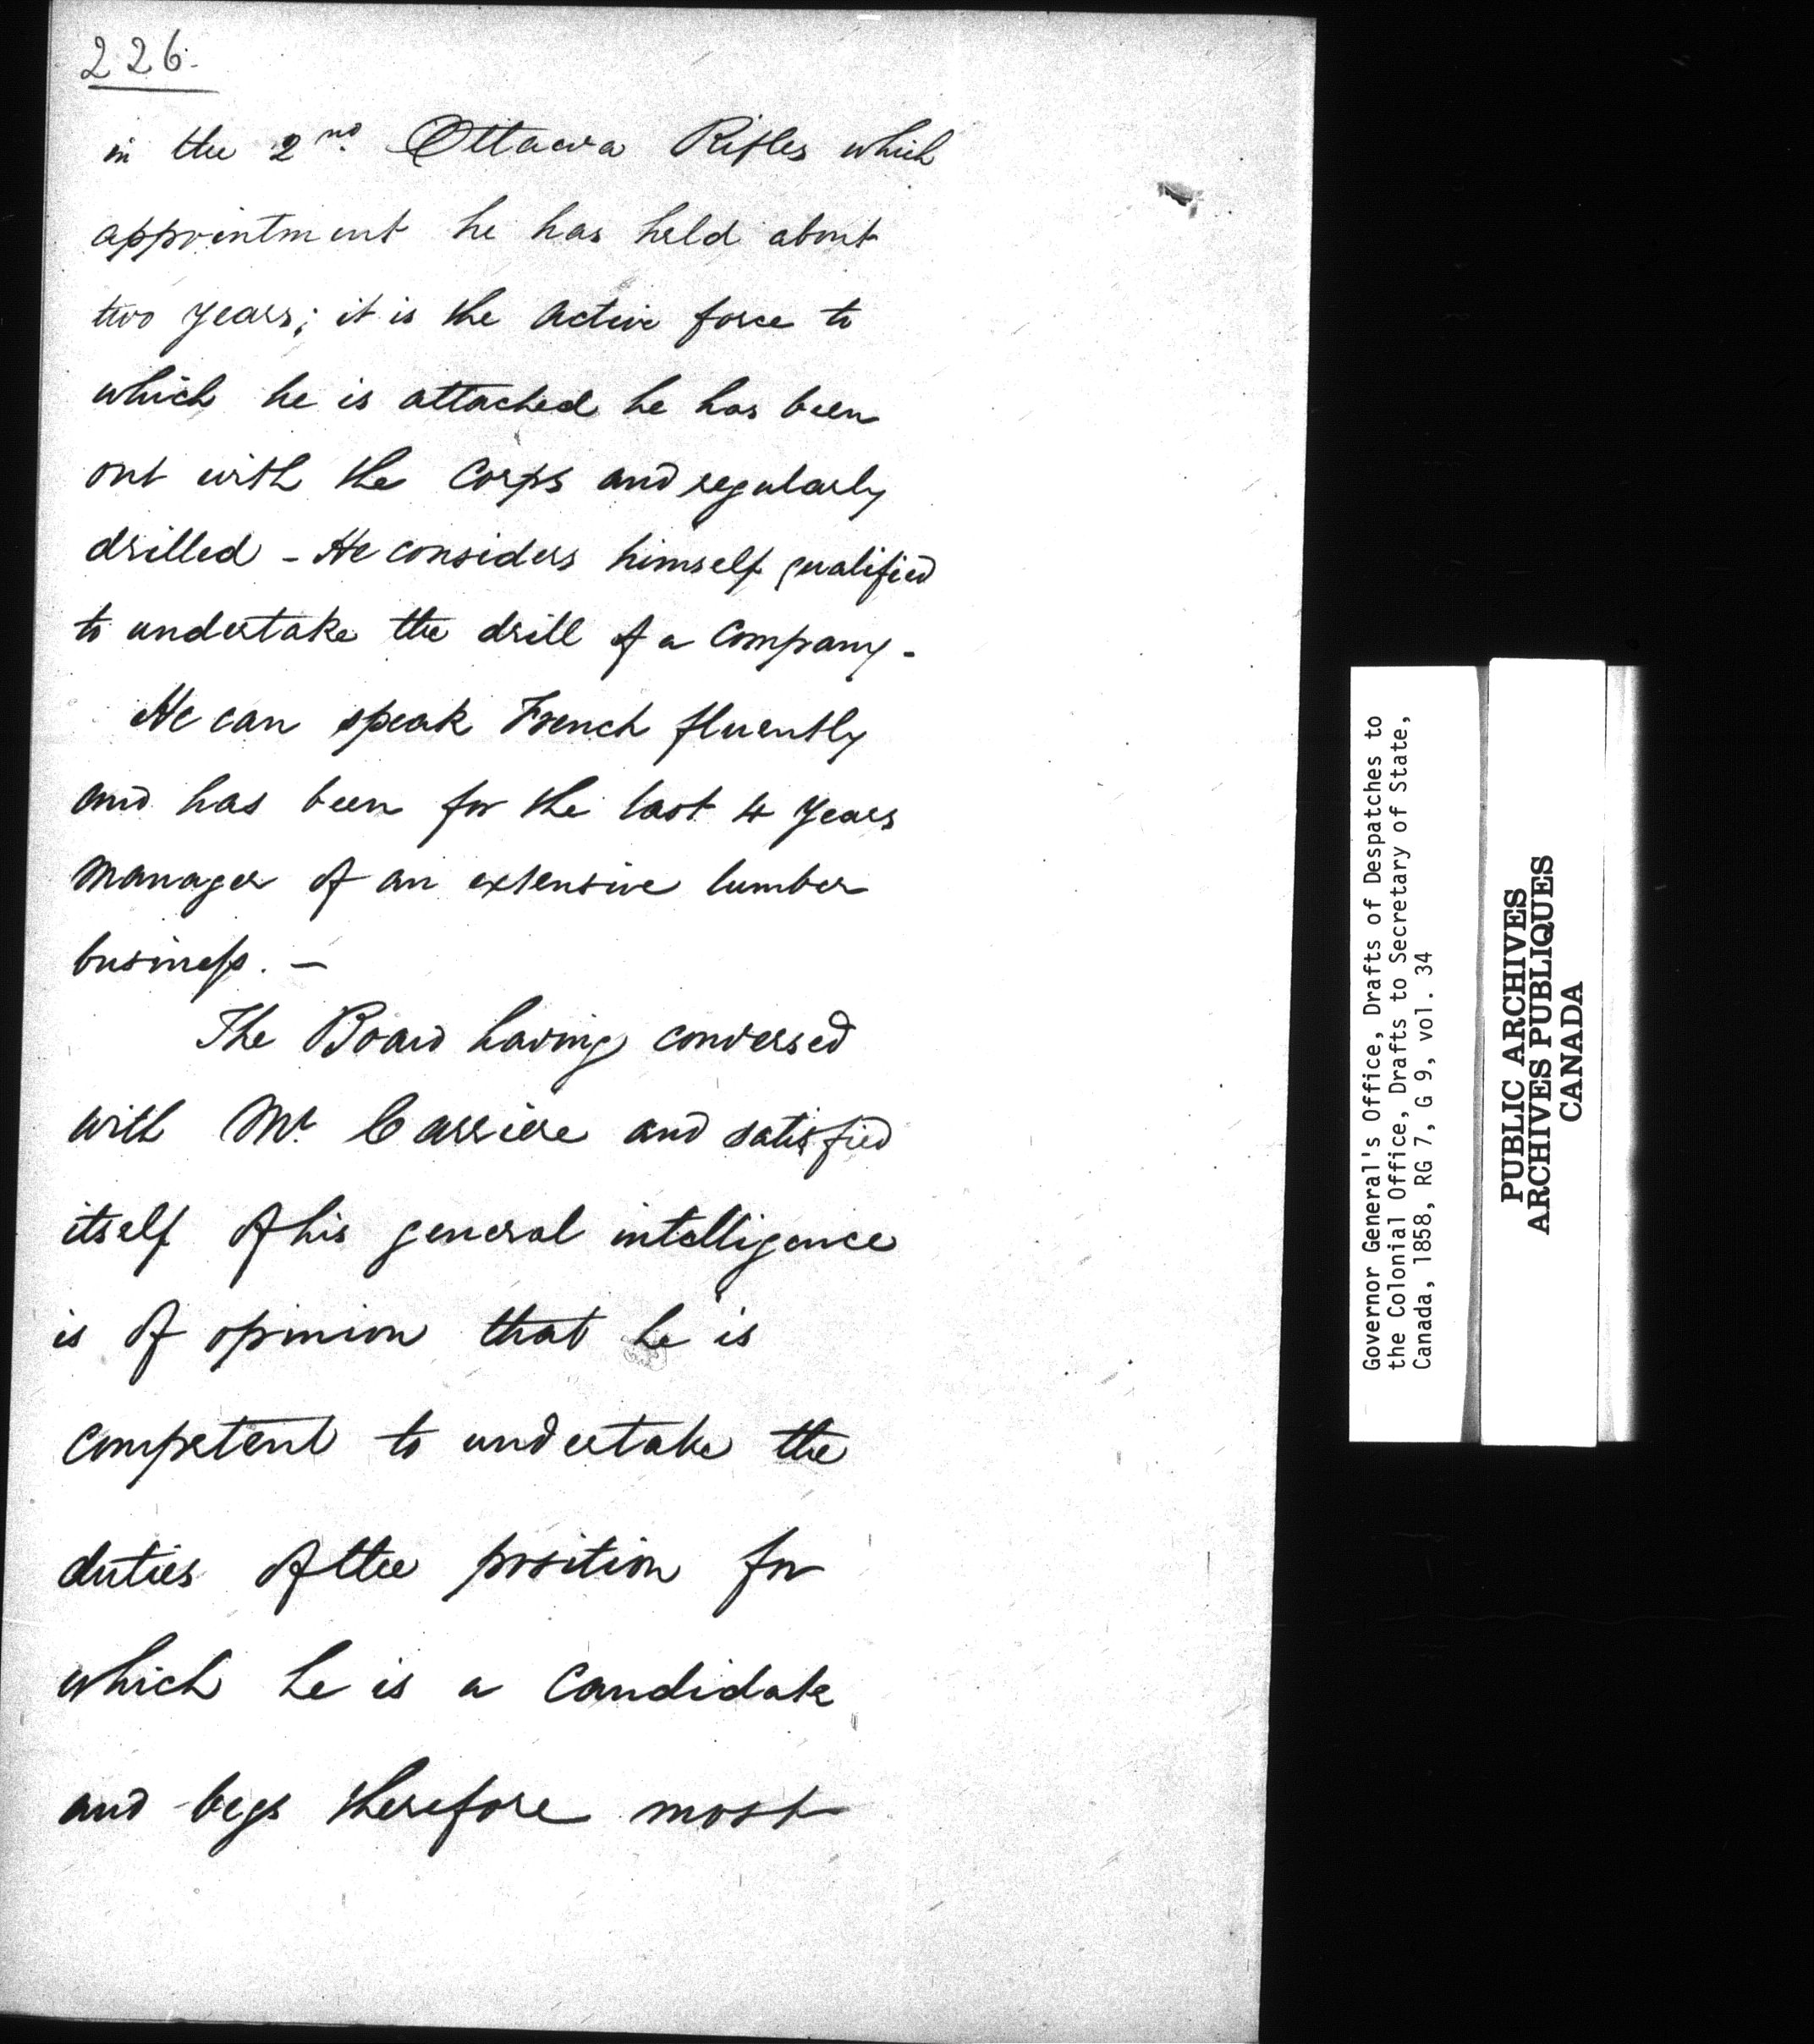 226.
in the 2nd. Ottawa Rifles which
appointment he has held about
two years; it is the active force to
which he is attached he has been
out with the Corps and regularly
drilled - He considers himself qualified
to undertake the drill of a Company -
He can speak French fluently
and has been for the last 4 years
Manager of an extensive lumber
business. —
The Board having conversed
with Mr Carriere and satisfied
itself of his general intelligence
is of opinion that he is
competent to undertake the
duties of the position for
which he is a Candidate
and begs therefore most
Governor General's Office, Drafts of Despatches to
the Colonial Office, Drafts to Secretary of State,
Canada, 1858, RG 7, G 9, vol. 34
PUBLIC ARCHIVES
ARCHIVES PUBLIQUES
CANADA